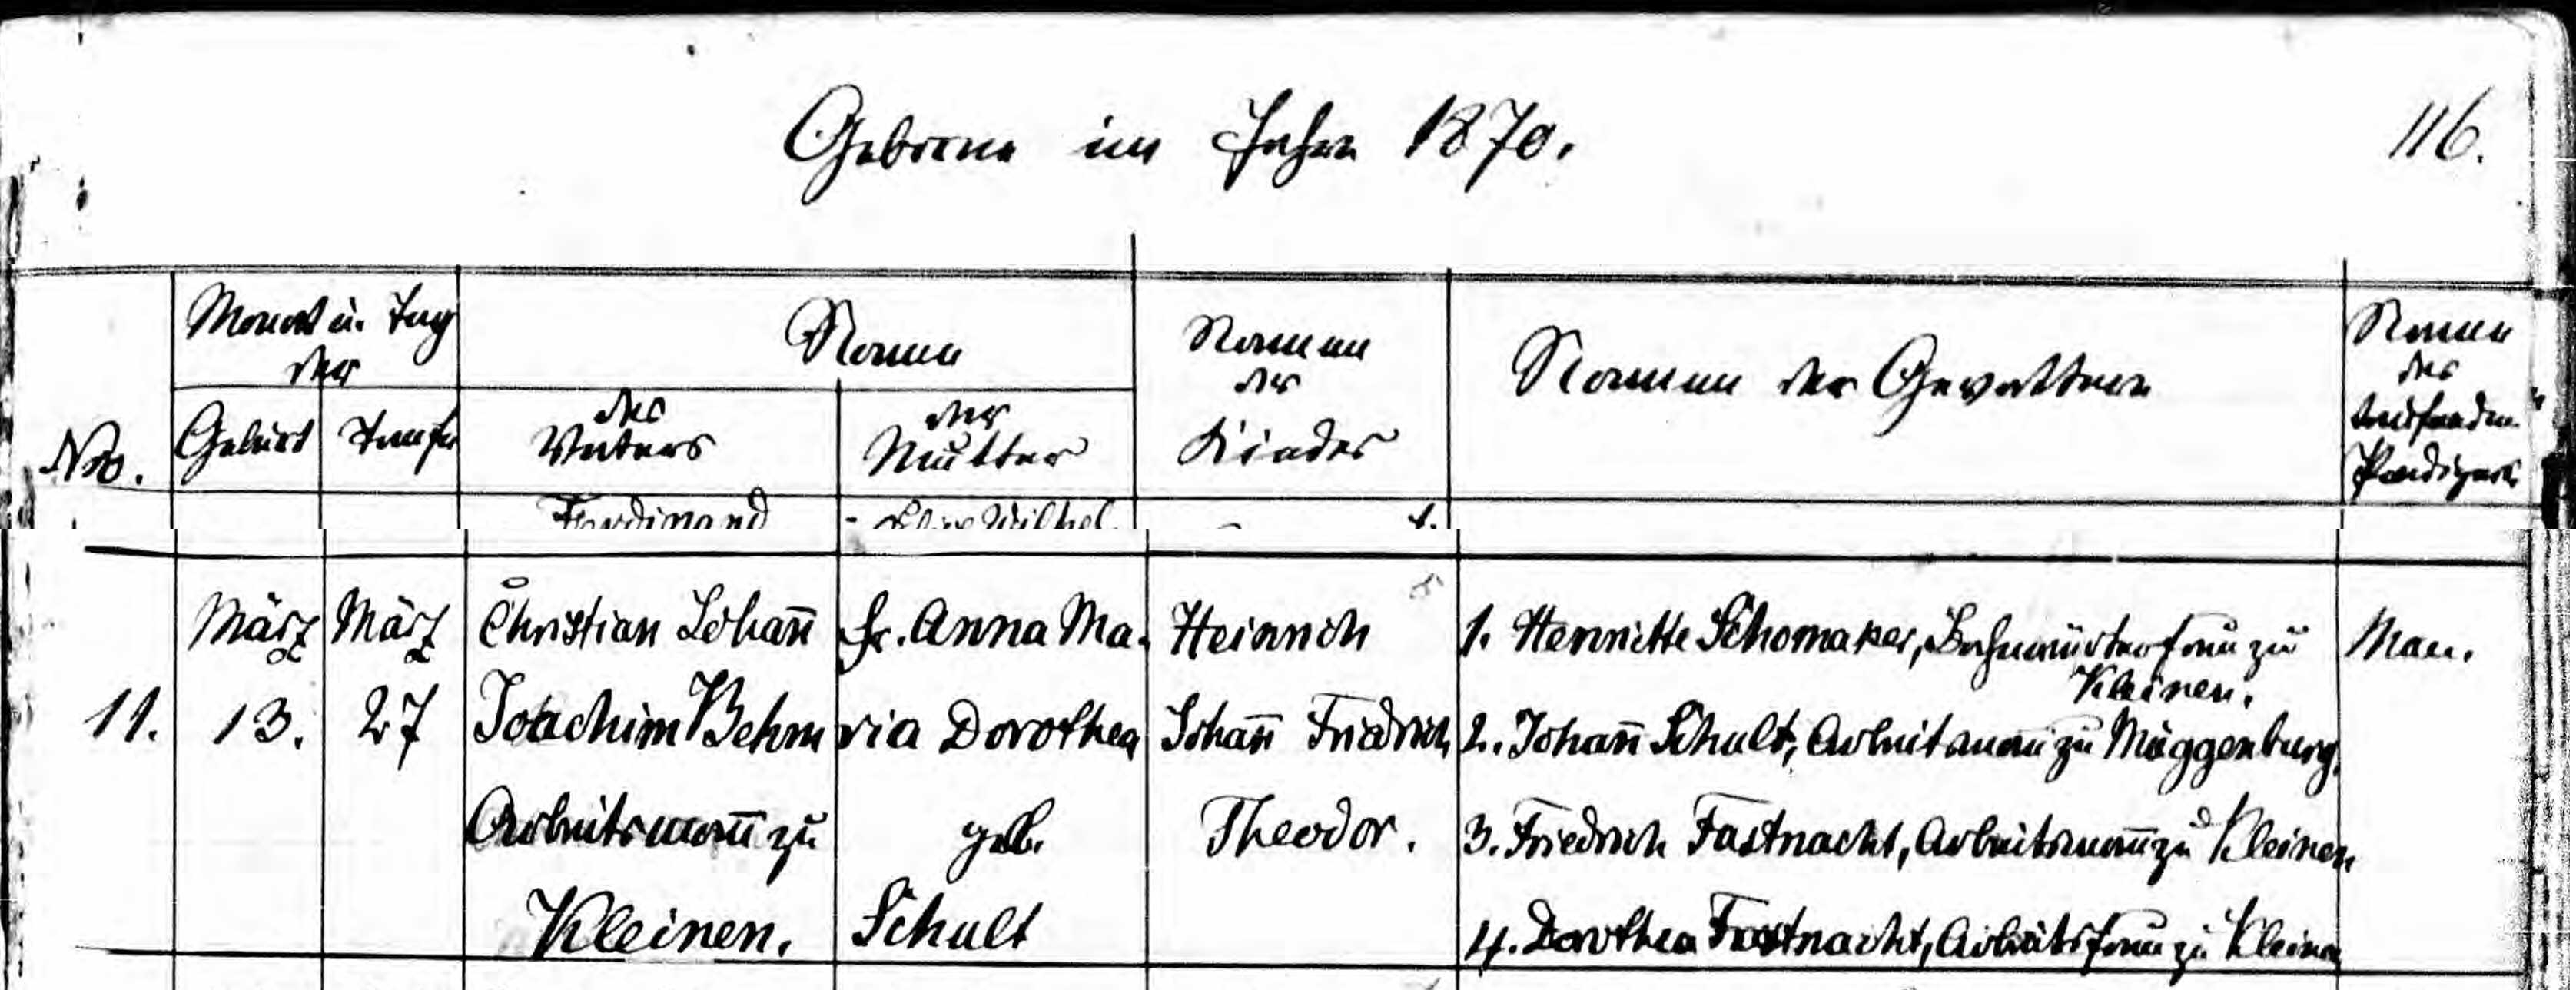 Geborene im Jahre 1870.
116.
No.
Monat u. Tag
der
Geburt
Taufe
Namen
des
Vaters
der
Mutter
Namen
der
Kinder
Namen der Gevattern
Namen
des
taufenden
Predigers
Ferdinand
Wilhel
11.
März
13.
März
27
Christian Johann̄
Joachim Behm
Arbeitsmann̄ zu
Kleinen.
Fr. Anna Ma-
ria Dorothea
geb.
Schult
Heinrich
Johann̄ Friedrich
Theodor.
1. Henriette Schomaker, Bahnwärterfrau zu
Kleinen.
2. Johann̄ Schult, Arbeitsmann̄ zu Müggenburg.
3. Friedrich Fastnacht, Arbeitsmann̄ zu Kleinen
4. Dorothea Fastnacht, Arbeitsfrau zu Kleinen
Mau.